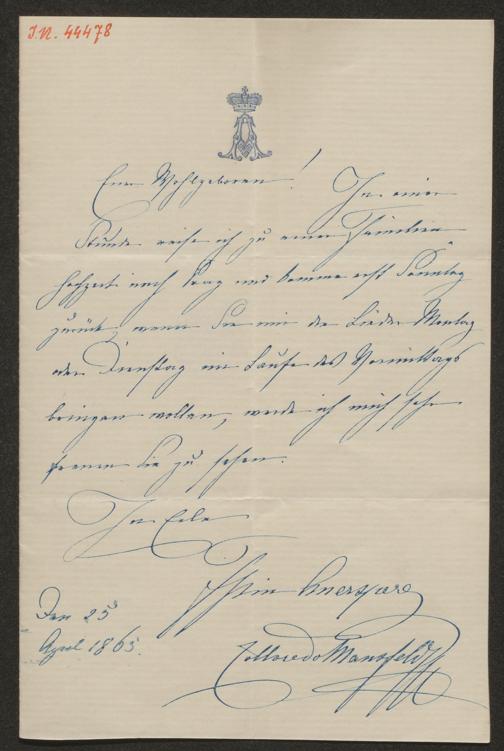 I.N. 44478
Euer Wohlgeboren! In einer
Stunde reise ich zu einer Familien-
hochzeit nach Prag und komme erst Sonntag
zurück, wenn Sie mir die Lieder Montag
oder Dienstag im Laufe des Vormittags
bringen wollen, werde ich mich sehr
freuen Sie zu sehen.
In Eile
Auersperg
Colloredo Mansfeld
Den 25
April 1865.